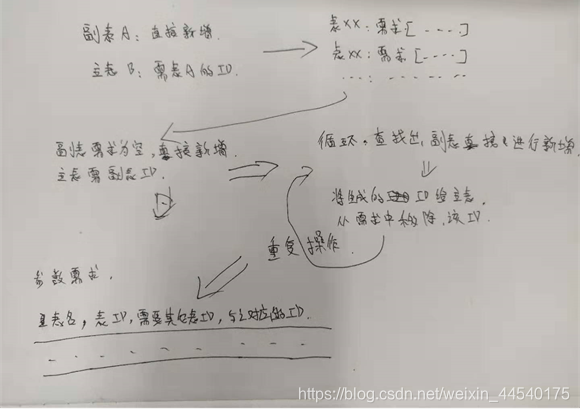 副表A：直接新增.
主表B：需表A的ID.
表XX：需求[----]
表XX：需求[----]
副表需求为空，直接新增.
主表需副表ID.
循环，查找出，副表直接进行新增.
将生成的ID给主表，
从需求中移除，该ID.
重复操作.
参数需求.
主表名，表ID，需要其他表ID，与之对应的ID.
https://blog.csdn.net/weixin_44540175